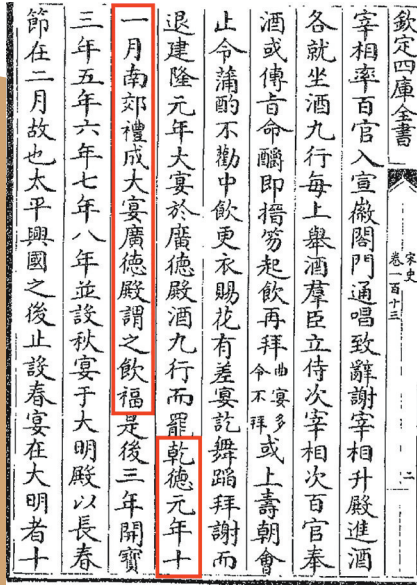 欽定四庫全書
宋史
卷一百十三
二
宰相率百官入宣徽閤門通唱致辭謝宰相升殿進酒
各就坐酒九行每上舉酒羣臣立侍次宰相次百官奉
酒或傳旨命釂即搢笏起飲再拜曲宴多令不拜或上壽朝會
止令滿酌不勸中飲更衣賜花有差宴訖舞蹈拜謝而
退建隆元年大宴於廣德殿酒九行而罷乾德元年十
一月南郊禮成大宴廣德殿謂之飲福是後三年開寶
三年五年六年七年八年並設秋宴于大明殿以長春
節在二月故也太平興國之後止設春宴在大明者十